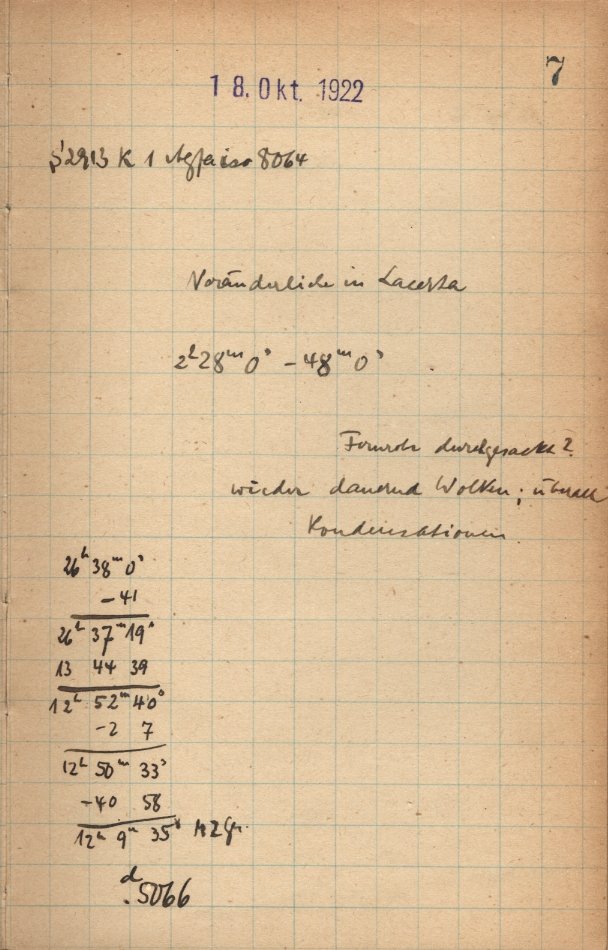 7
18. Okt. 1922
S 2913 K 1 Agfa iso 8064
Veränderliche in Lacerta
2ʰ28ᵐ0ˢ – 48ᵐ0ˢ
Fernrohr durchgesackt?
wieder dauernd Wolken; überall
Kondensationen.
26ʰ 38ᵐ 0ˢ
– 41
26ʰ 37ᵐ 19ˢ
13 44 39
12ʰ 52ᵐ 40ˢ
– 2 7
12ʰ 50ᵐ 33ˢ
– 40 58
12ʰ 9ᵐ 35ˢ MZGr.
ᵈ.5066